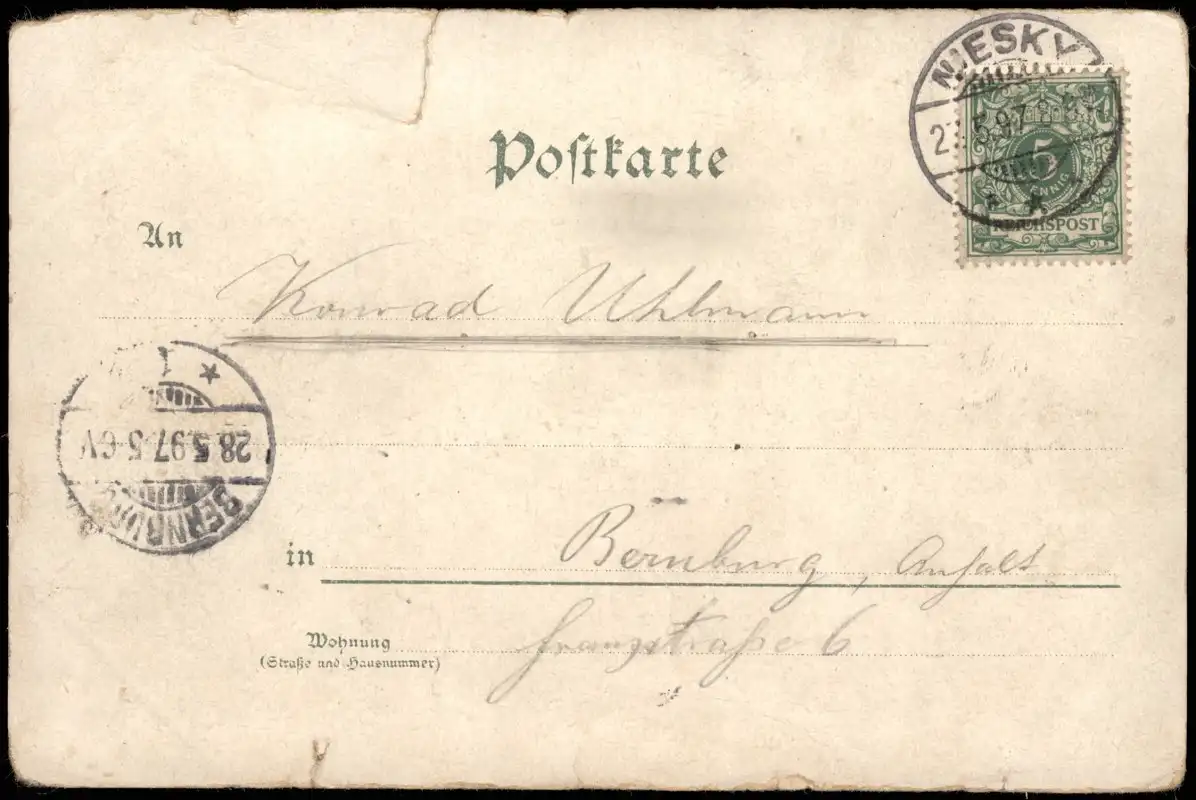 Postkarte
NIESKY
5.97. 8-9
5
PFENNIG
REICHSPOST
An
Konrad Uhlmann
1
28.5.97.5-6V
BERNBURG
in Bernburg, Anhalt
Wohnung Franzstraße 6
(Straße und Hausnummer)